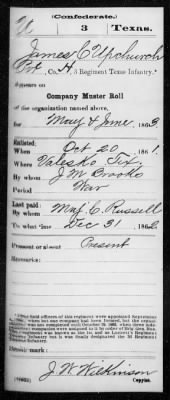 (Confederate.)
U 3 Texas.
James C Upchurch
Pvt, Co. H, 3 Regiment Texas Infantry.*
Appears on
Company Muster Roll
of the organization named above,
for May & June, 1863.
Enlisted:
When Oct 20, 1861.
Where Valasko Tex.
By whom J M Brooks
Period War
Last paid:
By whom Maj. C. Russell
To what time Dec 31, 1862.
Present or absent Present
Remarks:
Book mark:
J. W. Wilkinson
Copyist.